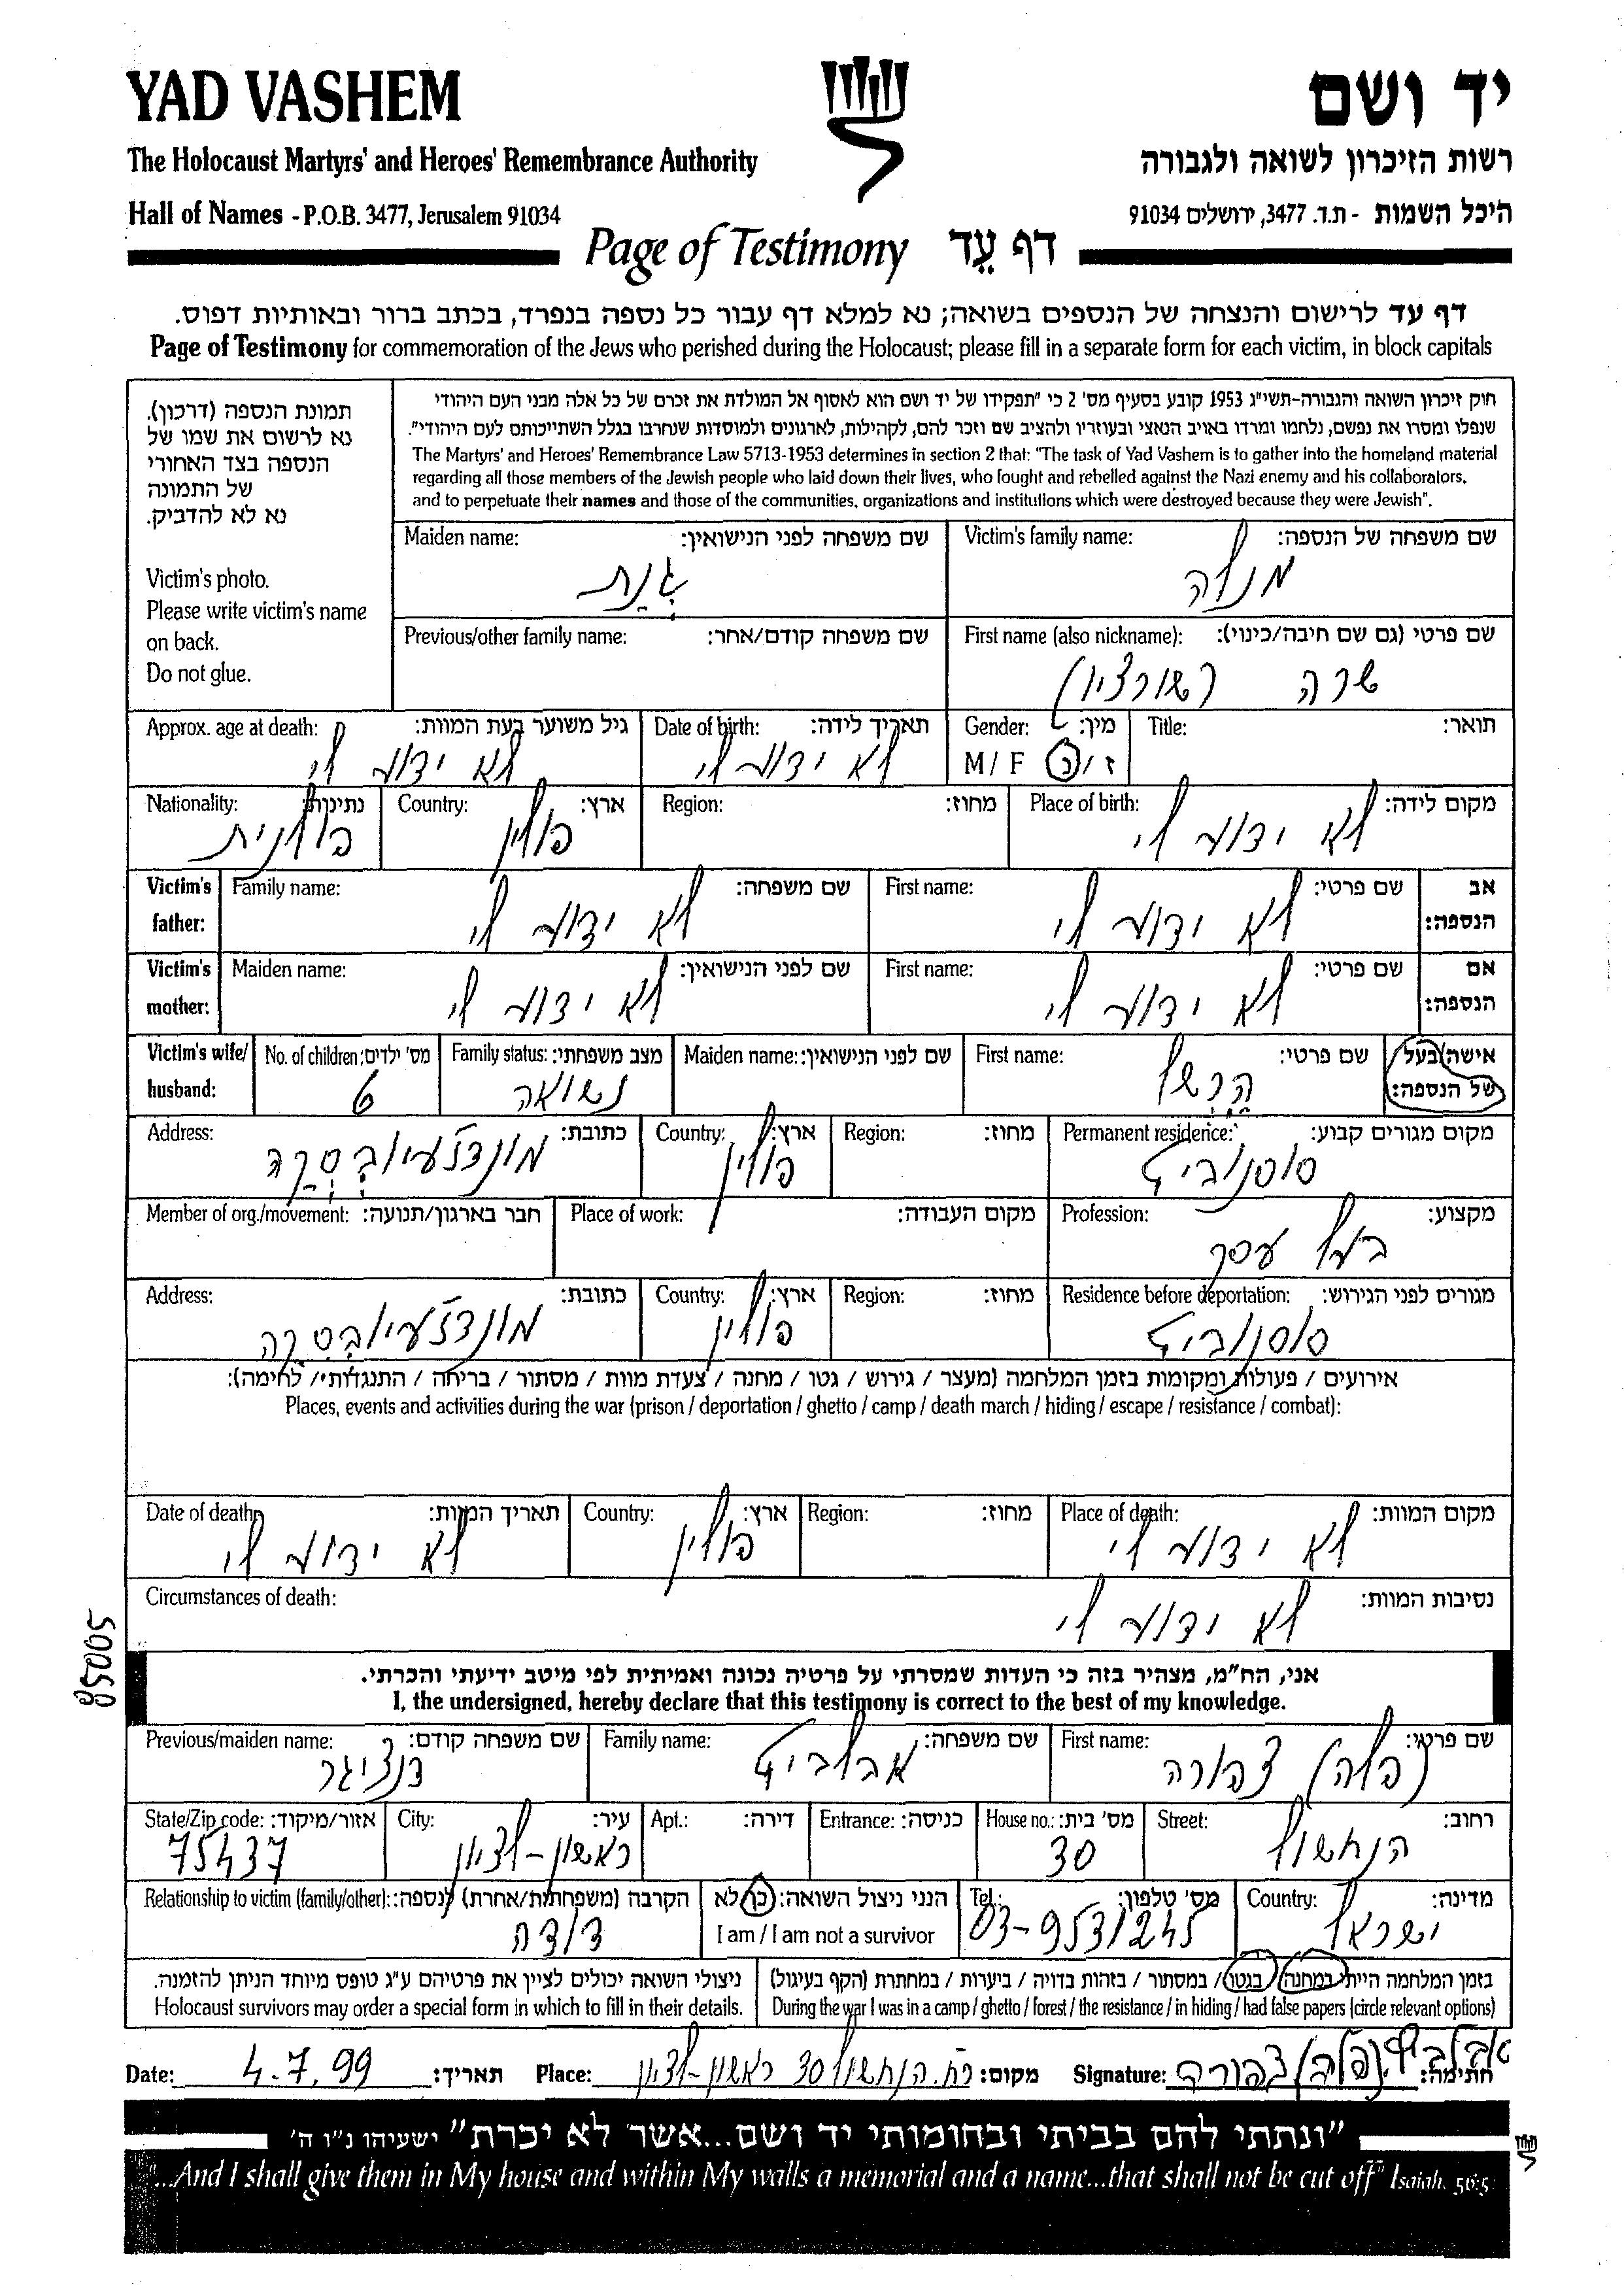 YAD VASHEM
יד ושם
The Holocaust Martyrs' and Heroes' Remembrance Authority
רשות הזיכרון לשואה ולגבורה
Hall of Names - P.O.B. 3477, Jerusalem 91034
היכל השמות - ת.ד. 3477, ירושלים 91034
Page of Testimony דף עֵד
דף עד לרישום והנצחה של הנספים בשואה; נא למלא דף עבור כל נספה בנפרד, בכתב ברור ובאותיות דפוס.
Page of Testimony for commemoration of the Jews who perished during the Holocaust; please fill in a separate form for each victim, in block capitals
תמונת הנספה (דרכון).
נא לרשום את שמו של
הנספה בצד האחורי
של התמונה
נא לא להדביק.
Victim's photo.
Please write victim's name
on back.
Do not glue.
חוק זיכרון השואה והגבורה-תשי"ג 1953 קובע בסעיף מס' 2 כי "תפקידו של יד ושם הוא לאסוף אל המולדת את זכרם של כל אלה מבני העם היהודי
שנפלו ומסרו את נפשם, נלחמו ומרדו באויב הנאצי ובעוזריו ולהציב שם וזכר להם, לקהילות, לארגונים ולמוסדות שנחרבו בגלל השתייכותם לעם היהודי".
The Martyrs' and Heroes' Remembrance Law 5713-1953 determines in section 2 that: "The task of Yad Vashem is to gather into the homeland material
regarding all those members of the Jewish people who laid down their lives, who fought and rebelled against the Nazi enemy and his collaborators,
and to perpetuate their names and those of the communities, organizations and institutions which were destroyed because they were Jewish".
Victim's family name: שם משפחה של הנספה:
מנלה
Maiden name: שם משפחה לפני הנישואין:
גנת
First name (also nickname): שם פרטי (גם שם חיבה/כינוי):
שרה (שורצי)
Previous/other family name: שם משפחה קודם/אחר:
Title: תואר:
Gender: מין:
M / F ז / נ
Date of birth: תאריך לידה:
לא ידוע לי
Approx. age at death: גיל משוער בעת המוות:
לא ידוע לי
Place of birth: מקום לידה:
לא ידוע לי
Region: מחוז:
Country: ארץ:
פולין
Nationality: נתינות:
פולנית
Victim's father: אב הנספה:
First name: שם פרטי:
לא ידוע לי
Family name: שם משפחה:
לא ידוע לי
Victim's mother: אם הנספה:
First name: שם פרטי:
לא ידוע לי
Maiden name: שם לפני הנישואין:
לא ידוע לי
Victim's wife/ husband: אישה/בעל של הנספה:
First name: שם פרטי:
הרשל
Maiden name: שם לפני הנישואין:
Family status: מצב משפחתי:
נשואה
No. of children: מס' ילדים:
6
Permanent residence: מקום מגורים קבוע:
סוסנוביץ
Region: מחוז:
Country: ארץ:
פולין
Address: כתובת:
מונדז'עיובסקה
Profession: מקצוע:
בעל עסק
Place of work: מקום העבודה:
Member of org./movement: חבר בארגון/תנועה:
Residence before deportation: מגורים לפני הגירוש:
סוסנוביץ
Region: מחוז:
Country: ארץ:
פולין
Address: כתובת:
מונדז'עיובסקה
אירועים / פעולות ומקומות בזמן המלחמה (מעצר / גירוש / גטו / מחנה / צעדת מוות / מסתור / בריחה / התנגדות / לחימה):
Places, events and activities during the war (prison / deportation / ghetto / camp / death march / hiding / escape / resistance / combat):
Place of death: מקום המוות:
לא ידוע לי
Region: מחוז:
Country: ארץ:
פולין
Date of death: תאריך המוות:
לא ידוע לי
Circumstances of death: נסיבות המוות:
לא ידוע לי
85005
אני, הח"מ, מצהיר בזה כי העדות שמסרתי על פרטיה נכונה ואמיתית לפי מיטב ידיעתי והכרתי.
I, the undersigned, hereby declare that this testimony is correct to the best of my knowledge.
First name: שם פרטי:
(פלה) צפורה
Family name: שם משפחה:
אבלביץ
Previous/maiden name: שם משפחה קודם:
דנציגר
Street: רחוב:
הנחשול
House no.: מס' בית:
30
Entrance: כניסה:
Apt.: דירה:
City: עיר:
ראשון-לציון
State/Zip code: אזור/מיקוד:
75437
Country: מדינה:
ישראל
Tel.: מס' טלפון:
03-9531245
הנני ניצול השואה: כן / לא
I am / I am not a survivor
Relationship to victim (family/other): הקרבה (משפחתית/אחרת) לנספה:
דודה
בזמן המלחמה הייתי במחנה / בגטו / במסתור / בזהות בדויה / ביערות / במחתרת (הקף בעיגול)
During the war I was in a camp / ghetto / forest / the resistance / in hiding / had false papers (circle relevant options)
ניצולי השואה יכולים לציין את פרטיהם ע"ג טופס מיוחד הניתן להזמנה.
Holocaust survivors may order a special form in which to fill in their details.
Date: 4.7.99 תאריך:
Place: רח. הנחשול 30 ראשון-לציון מקום:
Signature: אבלביץ (פלה) צפורה חתימה:
"ונתתי להם בביתי ובחומותי יד ושם...אשר לא יכרת" ישעיהו נ"ו ה'
"...And I shall give them in My house and within My walls a memorial and a name...that shall not be cut off" Isaiah, 56:5